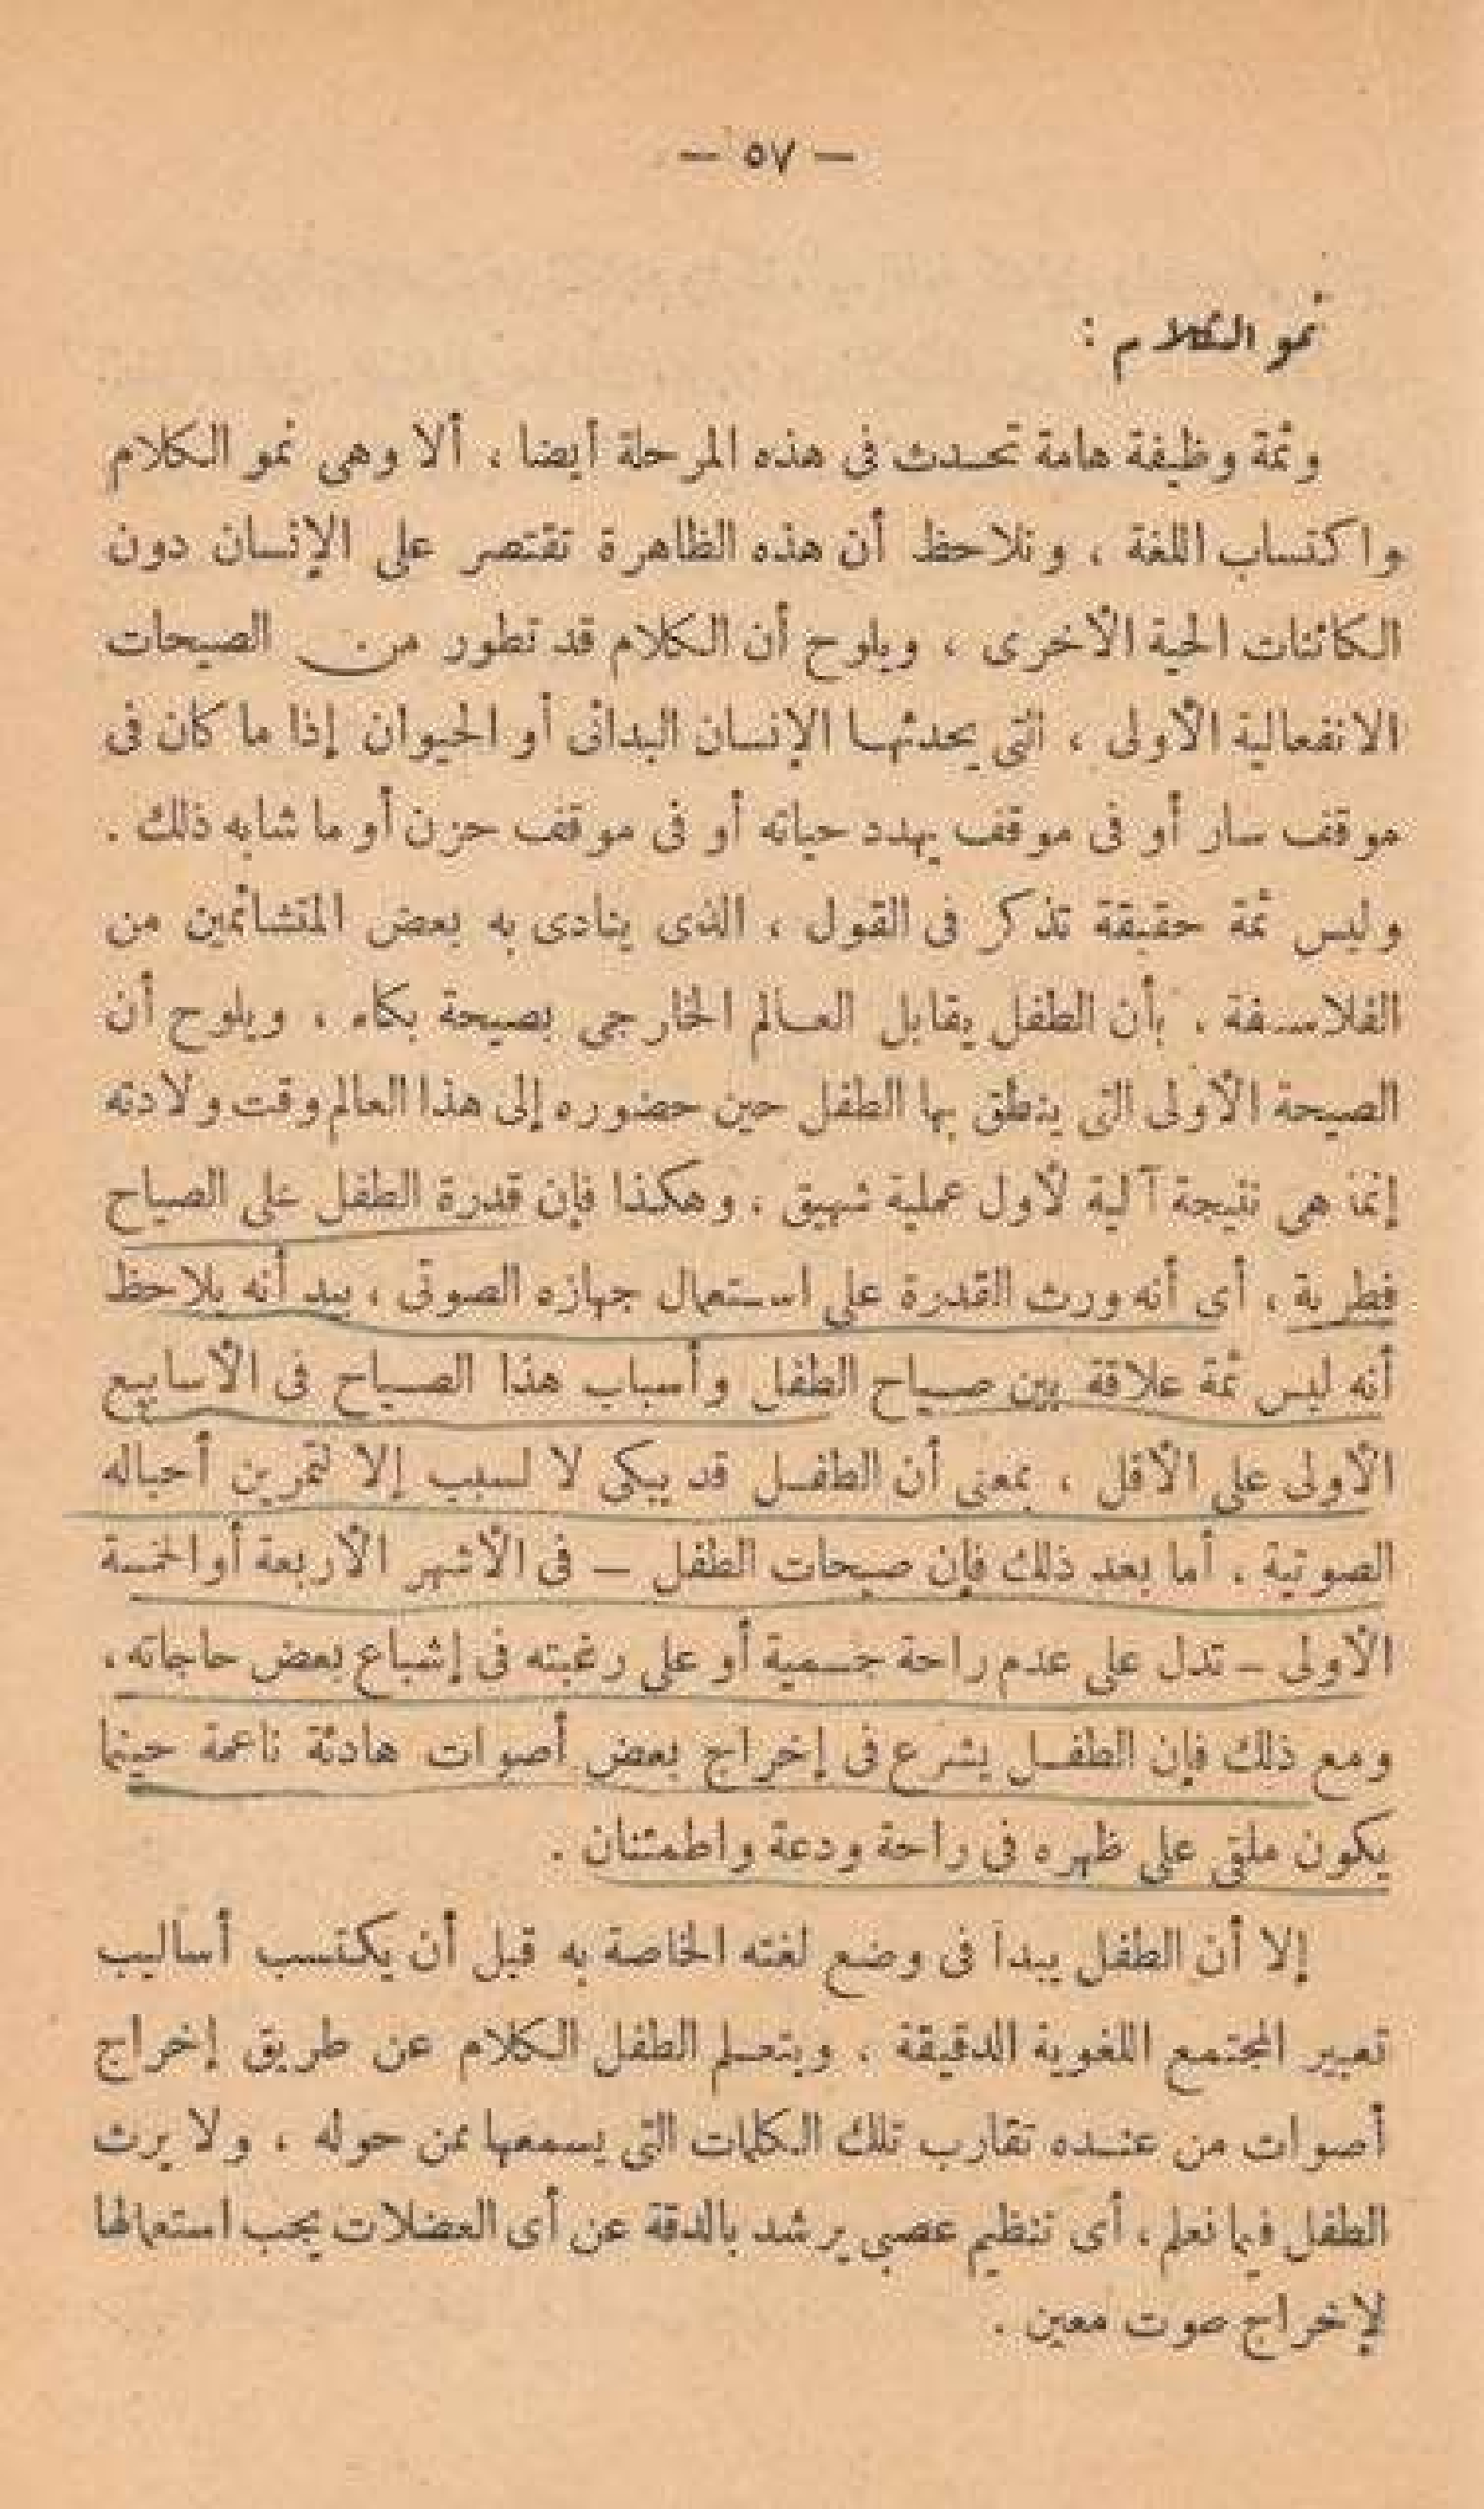 — ٥٧ —
نمو الكلام :
وثمة وظيفة هامة تحدث فى هذه المرحلة أيضا ، ألا وهى نمو الكلام
واكتساب اللغة ، ونلاحظ أن هذه الظاهرة تقتصر على الإنسان دون
الكائنات الحية الأخرى ، ويلوح أن الكلام قد تطور من الصيحات
الانفعالية الأولى ، التى يحدثها الإنسان البدائى أو الحيوان إذا ما كان فى
موقف سار أو فى موقف يهدد حياته أو فى موقف حزن أو ما شابه ذلك .
وليس ثمة حقيقة تذكر فى القول ، الذى ينادى به بعض المتشائمين من
الفلاسفة ، بأن الطفل يقابل العالم الخارجى بصيحة بكاء ، ويلوح أن
الصيحة الأولى التى ينطق بها الطفل حين حضوره إلى هذا العالم وقت ولادته
إنما هى نتيجة آلية لأول عملية شهيق ، وهكذا فإن قدرة الطفل على الصياح
فطرية ، أى أنه ورث القدرة على استعمال جهازه الصوتى ، بيد أنه يلاحظ
أنه ليس ثمة علاقة بين صياح الطفل وأسباب هذا الصياح فى الأسابيع
الأولى على الأقل ، بمعنى أن الطفل قد يبكى لا لسبب إلا لتمرين أحباله
الصوتية . أما بعد ذلك فإن صيحات الطفل – فى الأشهر الأربعة أو الخمسة
الأولى – تدل على عدم راحة جسمية أو على رغبته فى إشباع بعض حاجاته ،
ومع ذلك فإن الطفل يشرع فى إخراج بعض أصوات هادئة ناعمة حينما
يكون ملقى على ظهره فى راحة ودعة واطمئنان .
إلا أن الطفل يبدأ فى وضع لغته الخاصة به قبل أن يكتسب أساليب
تعبير المجتمع اللغوية الدقيقة . ويتعلم الطفل الكلام عن طريق إخراج
أصوات من عنده تقارب تلك الكلمات التى يسمعها ممن حوله ، ولا يرث
الطفل فيما نعلم ، أى تنظيم عصبى يرشد بالدقة عن أى العضلات يجب استعمالها
لإخراج صوت معين .